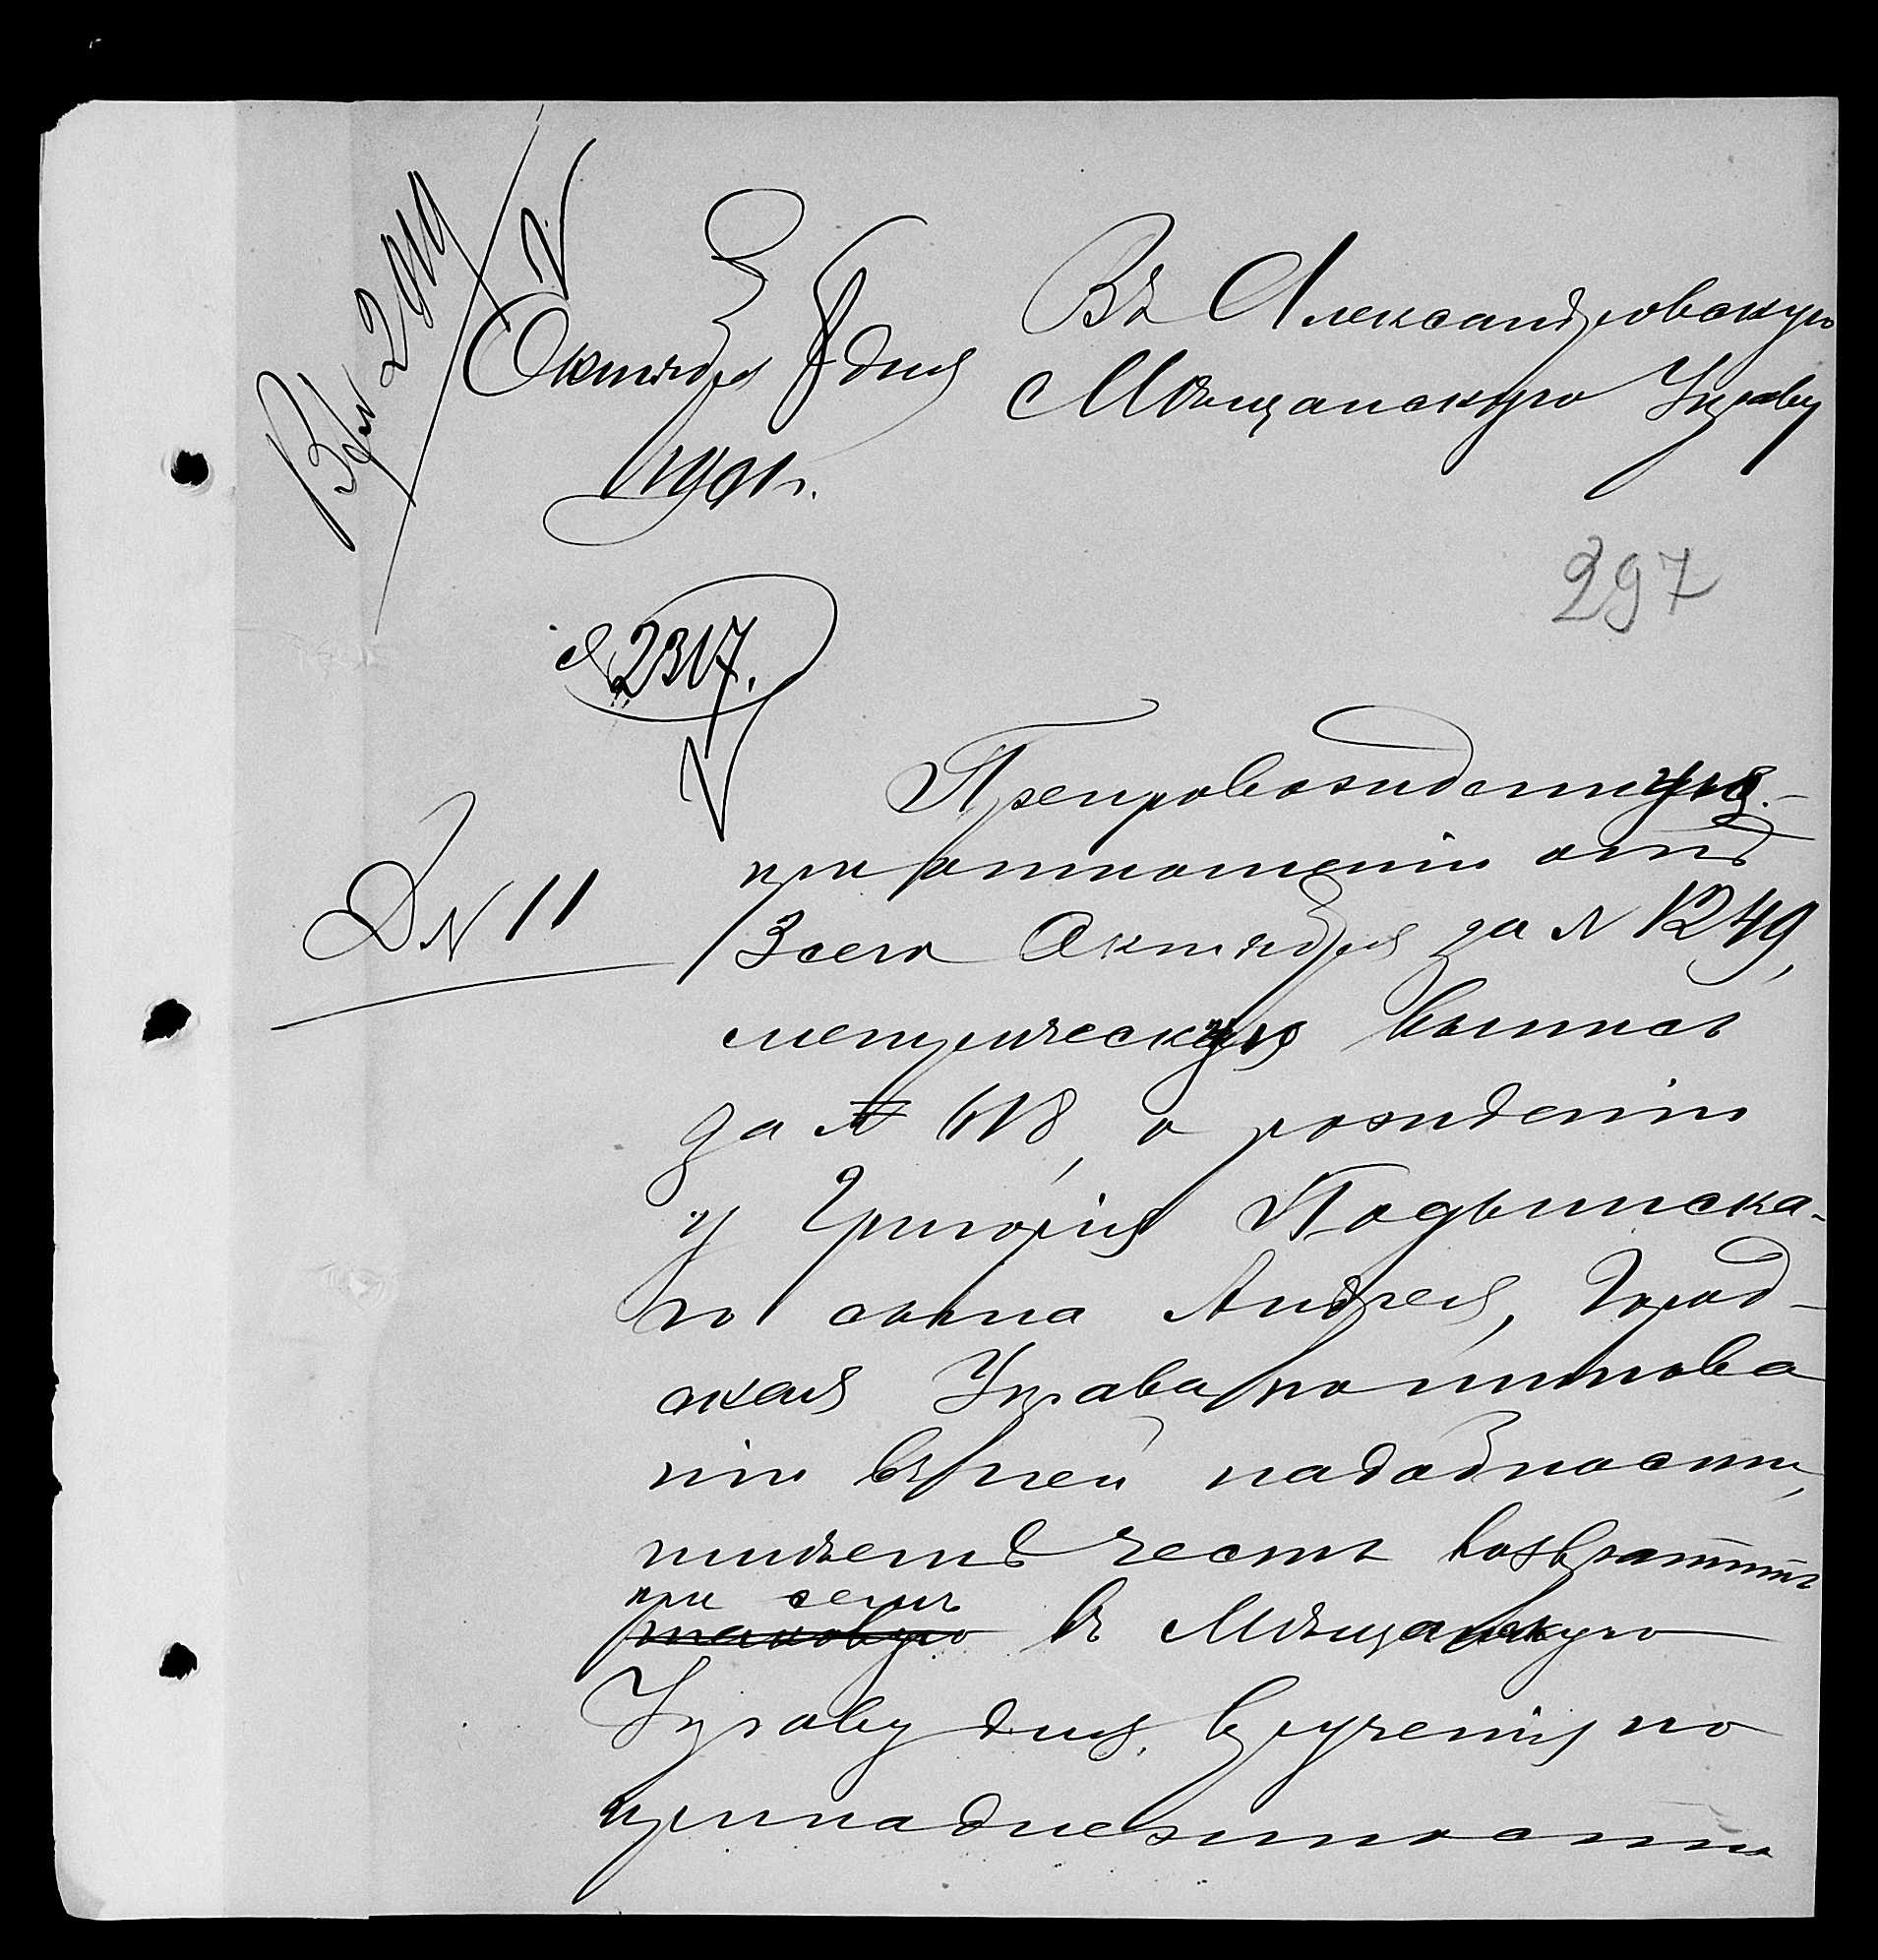 Октября 8 дня
1901 г.
Въ Александровскую
Мѣщанскую Управу
297
№ 2317.
Д № 11
Препровожденную
при отношеніи отъ
3 сего Октября за № 1249,
метрическую выпись
за № 618, о рожденіи
у Григорія Подвинска-
го сына Андрея, Город-
ская Управа по минова
ніи въ ней надобности,
имѣетъ честь возвратить
при семъ
таковую въ Мѣщанскую
Управу для врученія по
принадлежности